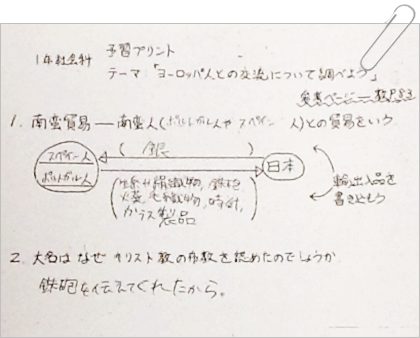 1年社会科 予習プリント
テーマ「ヨーロッパ人との交流について調べよう」
参考ページ―教P83
1. 南蛮貿易―南蛮人(ポルトガル人やスペイン 人)との貿易をいう
( 銀 )
スペイン人
ポルトガル人
日本
(生糸や絹織物, 鉄砲
火薬, 毛織物, 時計,
ガラス製品)
輸出入品を
書きこもう
2. 大名はなぜキリスト教の布教を認めたのでしょうか
鉄砲を伝えてくれたから。